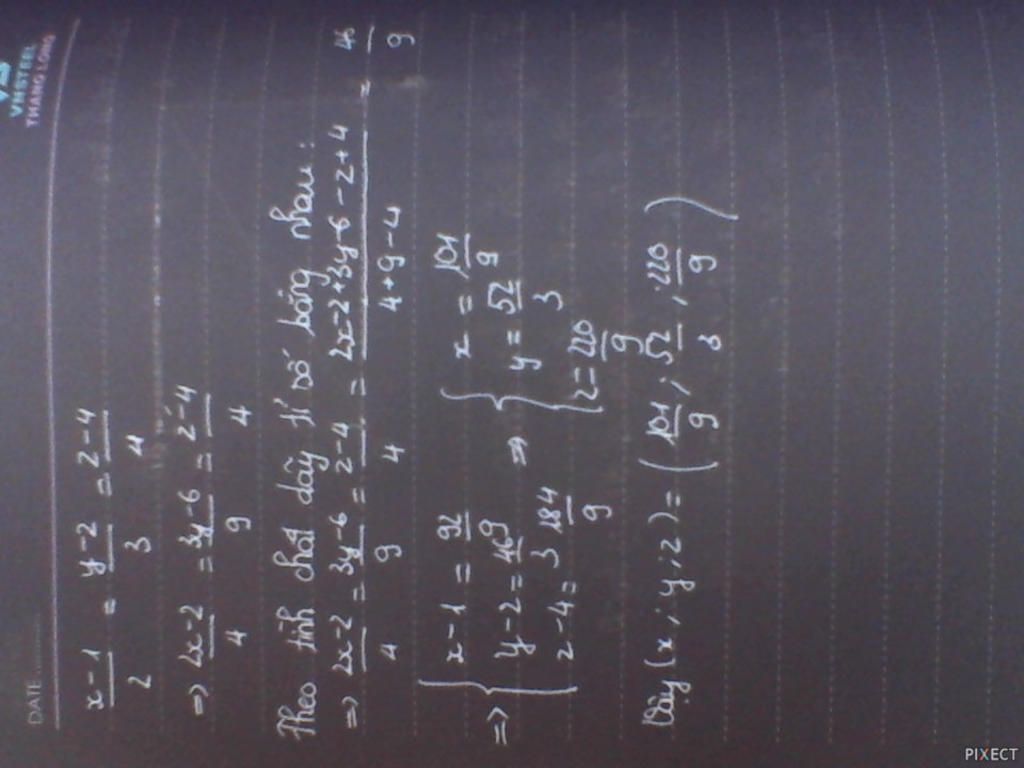 VNSTEEL
THANG LONG
DATE
x-1/2 = y-2/3 = z-4/4
=> 2x-2/4 = 3y-6/9 = z-4/4
Theo tính chất dãy tỉ số bằng nhau:
=> 2x-2/4 = 3y-6/9 = z-4/4 = 2x-2+3y-6-z+4/4+9-4 = 46/9
=> { x-1 = 92/9 => { x = 101/9
y-2 = 46/3 y = 52/3
z-4 = 184/9 z = 220/9
Vậy (x; y; z) = (101/9; 52/3; 220/9)
PIXECT